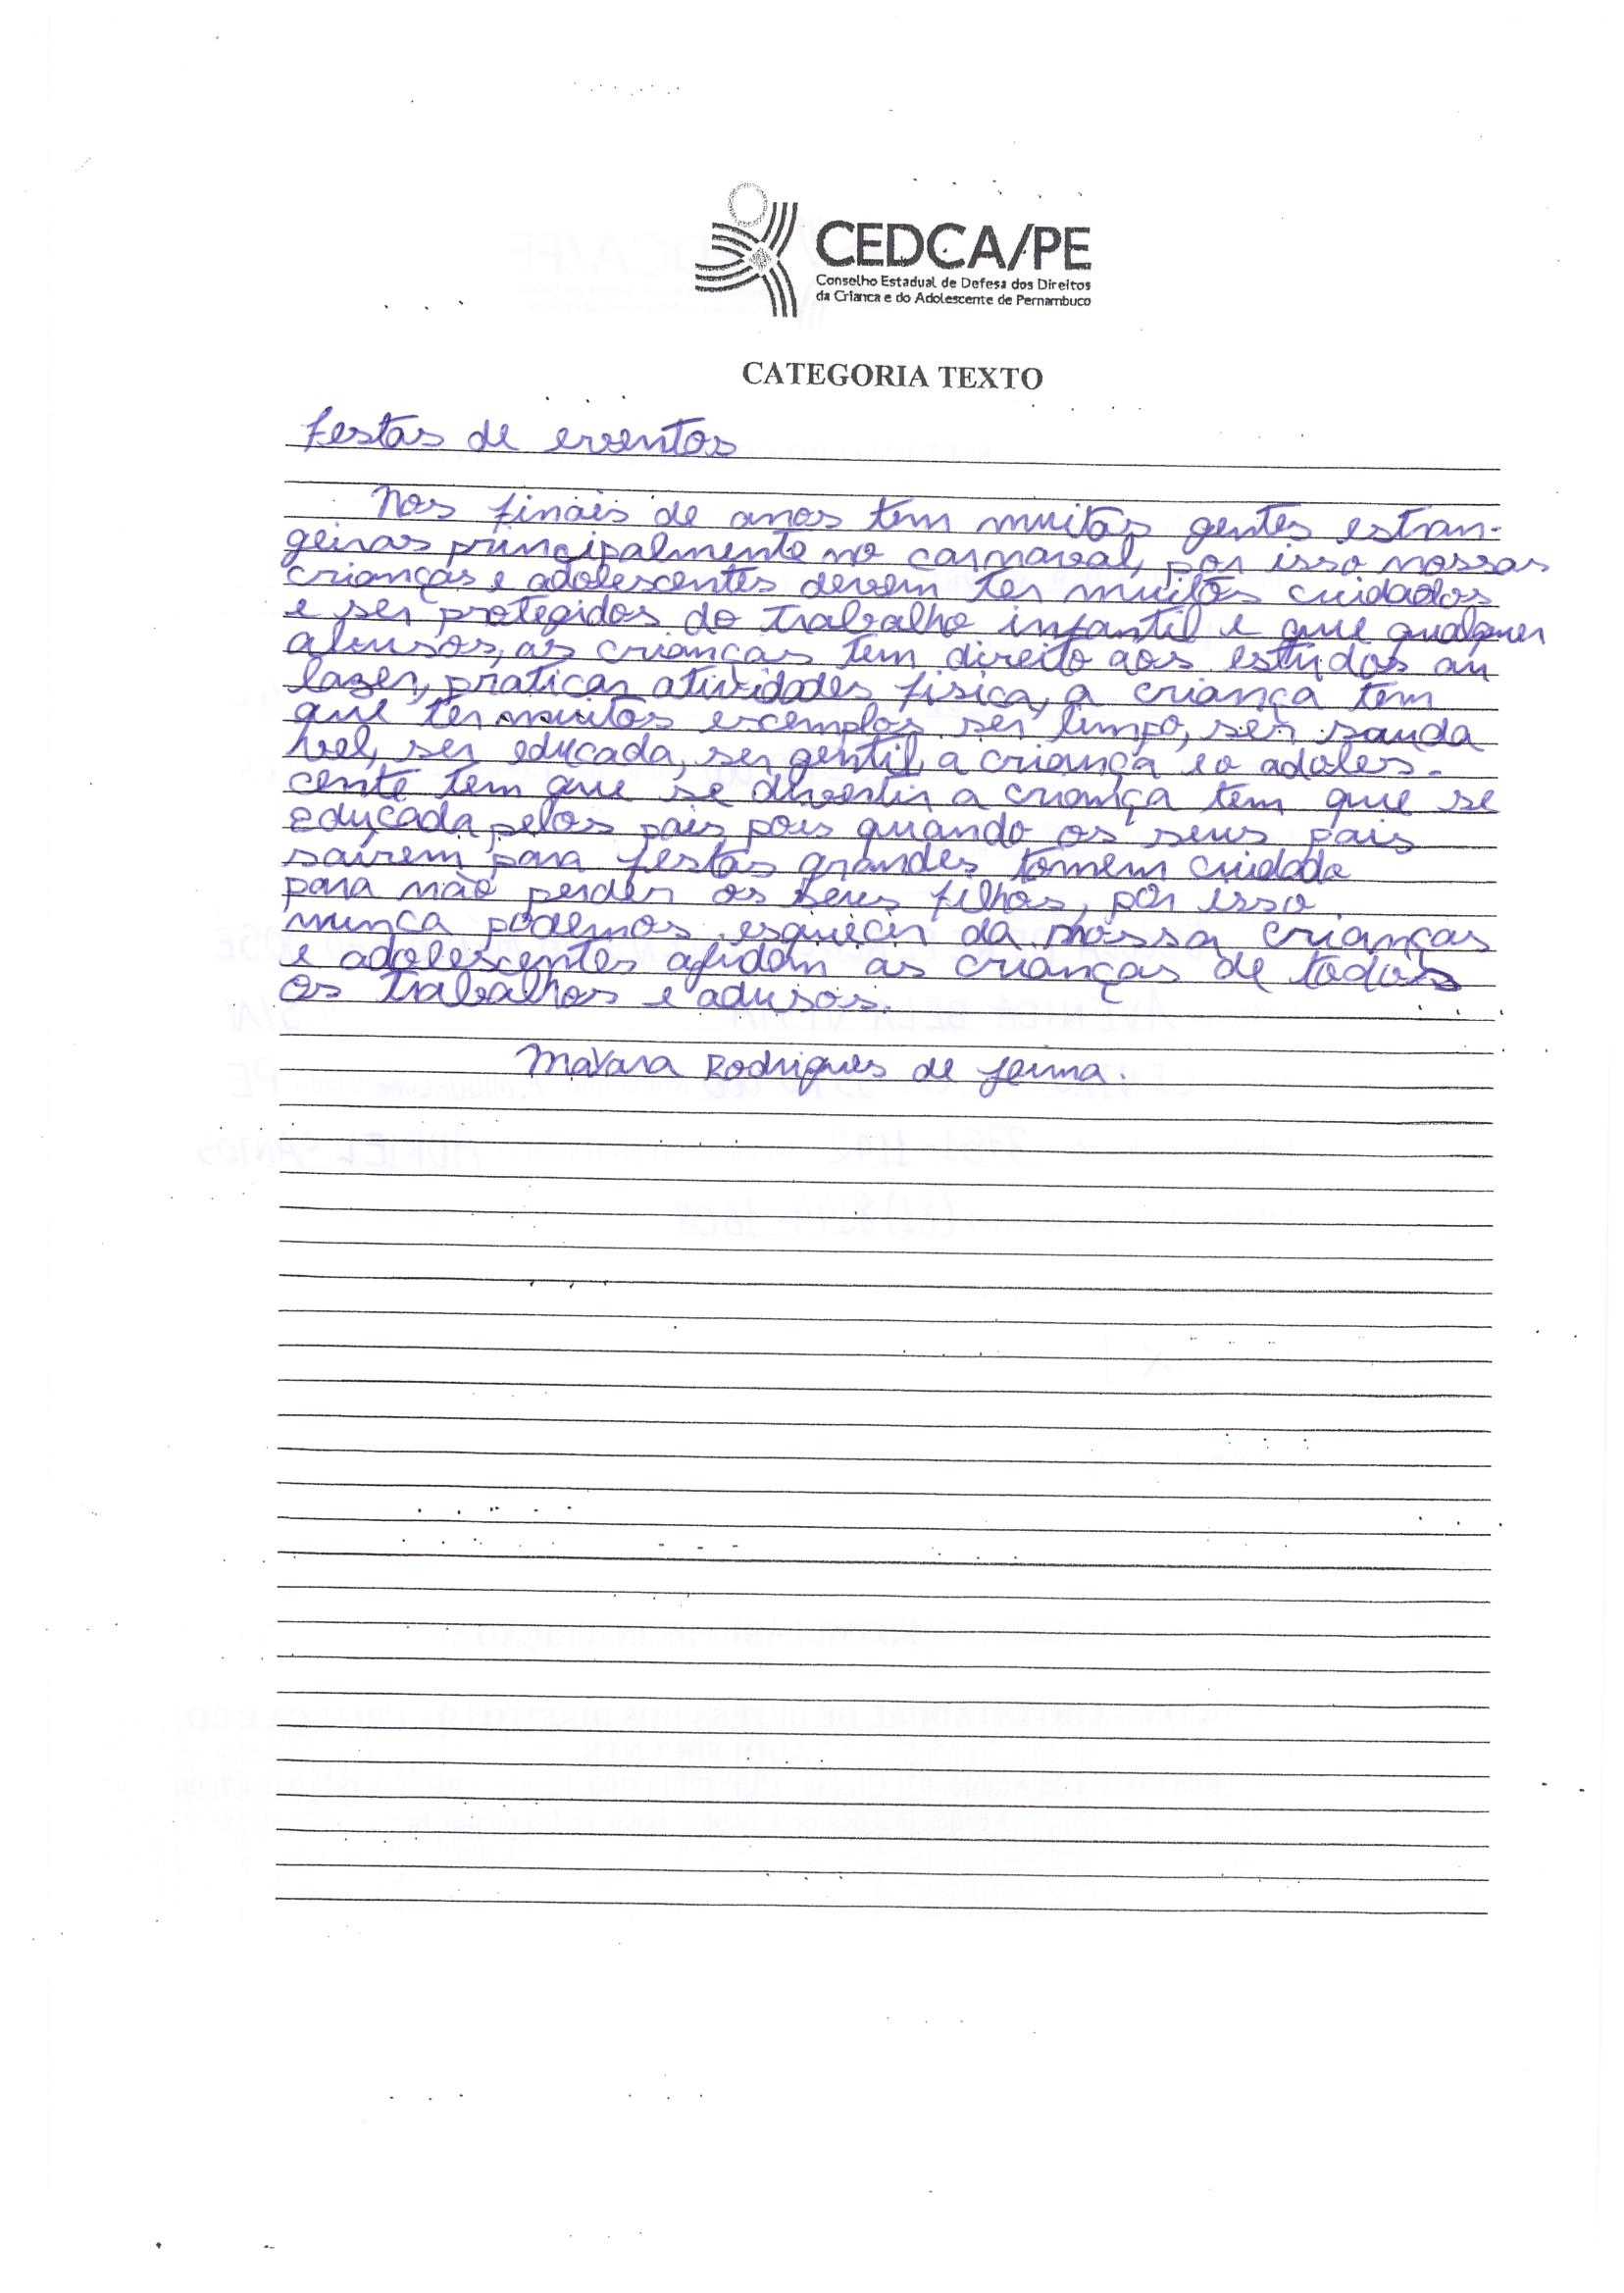 CEDCA/PE
Conselho Estadual de Defesa dos Direitos
da Criança e do Adolescente de Pernambuco
CATEGORIA TEXTO
festas de eventos
Nos finais de anos tem muitas gentes estran-
geiras principalmente no carnaval, por isso nossas
crianças e adolescentes devem ter muitos cuidados
e ser protegidos do trabalho infantil e que qualquer
abusos, as crianças tem direito aos estudos au
lazer, praticar atividades fisica, a criança tem
que ter muitos escemplos ser limpo, ser sauda
vel, ser educada, ser gentil, a criança e o adoles-
cente tem que se divertir a criança tem que se
educada pelos pais, pois quando os seus pais
sairem para festas grandes tomem cuidado
para não perder os seus filhos, por isso
nunca podemos esquecer da nossa crianças
e adolescentes ajudem as crianças de todos
os trabalhos e adusos.
Mayara Rodrigues de